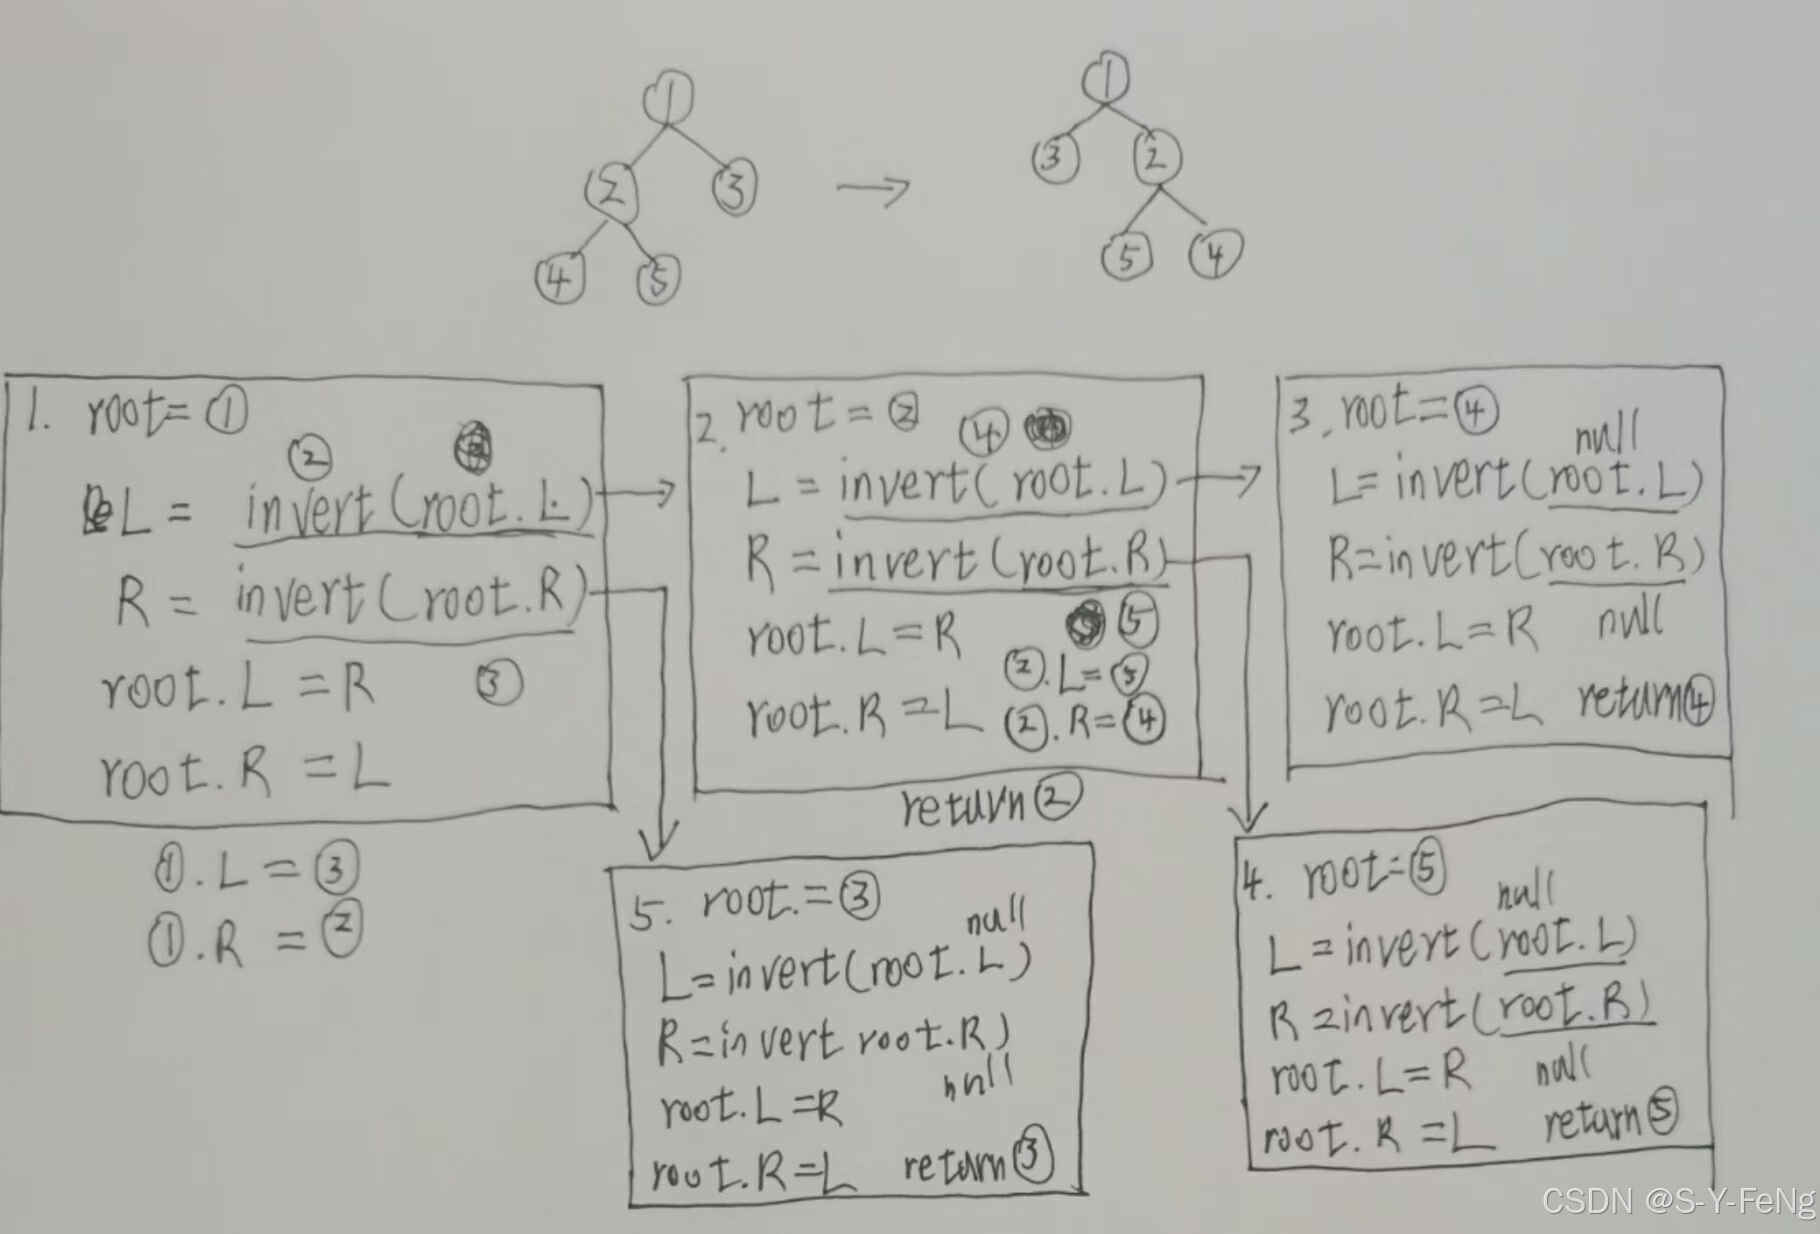 ①
①
② ③ → ③ ②
④ ⑤
⑤ ④
1. root=①
②
L = invert(root.L)
R = invert(root.R)
root.L=R ③
root.R=L
①.L=③
①.R=②
2. root=②
④
L=invert(root.L)
R=invert(root.R)
root.L=R ⑤
②.L=⑤
root.R=L ②.R=④
return②
3. root=④
null
L=invert(root.L)
R=invert(root.R)
root.L=R null
root.R=L return④
4. root=⑤
null
L=invert(root.L)
R=invert(root.R)
root.L=R null
root.R=L return⑤
5. root.=③
null
L=invert(root.L)
R=invert root.R)
null
root.L=R
root.R=L return③
CSDN @S-Y-FeNg